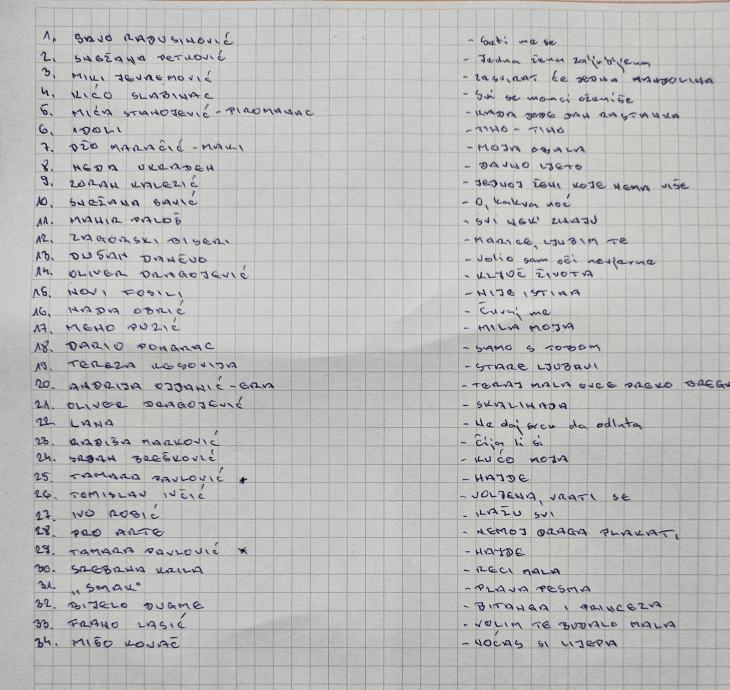 1. SAVO RADUSINOVIĆ - Seti me se
2. SNEŽANA PETKOVIĆ - Jedna žena zaljubljena
3. MIKI JEVREMOVIĆ - ZASVIRAT ĆE JEDNA MANDOLINA
4. KIĆO SLABINAC - Svi se momci oženiše
5. MIĆA STANOJEVIĆ - PIROMANAC - KADA DOĐE DAN RASTANKA
6. IDOLI - TIHO - TIHO
7. DŽO MARAČIĆ - MAKI - MOJA OBALA
8. NEDA UKRADEN - DAVNO LJETO
9. ZORAN KALEZIĆ - JEDNOJ ŽENI KOJE NEMA VIŠE
10. SNEŽANA SAVIĆ - O, kakva noć
11. MAHIR PALOŠ - SVI NEK' ZNAJU
12. ZAGORSKI BISERI - MARICE, LJUBIM TE
13. DUŠAN DANČUO - Volio sam oči nevjerne
14. OLIVER DRAGOJEVIĆ - KLJUČ ŽIVOTA
15. NOVI FOSILI - NIJE ISTINA
16. NADA OBRIĆ - Čuvaj me
17. MEHO PUZIĆ - MILA MOJA
18. DARIO PONGRAC - SAMO S TOBOM
19. TEREZA KESOVIJA - STARE LJUBAVI
20. ANDRIJA OJDANIĆ - ERA - TERAJ MALA OVCE PREKO BREGA
21. OLIVER DRAGOJEVIĆ - SKALINADA
22. LANA - Ne daj srcu da odluta
23. RADIŠA MARKOVIĆ - Čija li si
24. SRĐAN BREŠKOVIĆ - KUĆO MOJA
25. TAMARA PAVLOVIĆ * - HAJDE
26. TOMISLAV IVČIĆ - VOLJENA, VRATI SE
27. IVO ROBIĆ - KAŽU SVI
28. PRO ARTE - NEMOJ DRAGA PLAKATI
29. TAMARA PAVLOVIĆ * - HAJDE
30. SREBRNA KRILA - RECI MALA
31. "SMAK" - PLAVA PESMA
32. BIJELO DUGME - BITANGA I PRINCEZA
33. FRANO LASIĆ - VOLIM TE BUDALO MALA
34. MIŠO KOVAČ - NOĆAS SI LIJEPA